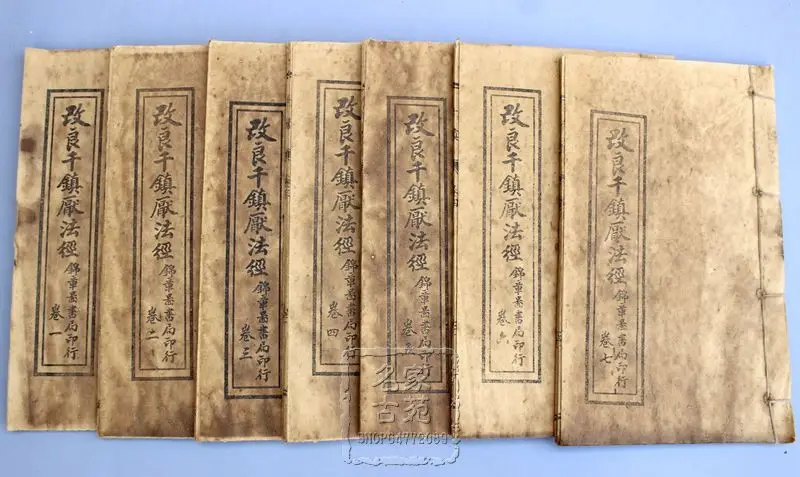 改良千鎮厭法經 錦章書局印行 卷一
改良千鎮厭法經 錦章圖書局印行 卷二
改良千鎮厭法經 錦章圖書局印行 卷三
改良千鎮厭法經 錦章圖書局印行 卷四
改良千鎮厭法經 錦章圖書局印行 卷五
改良千鎮厭法經 錦章圖書局印行 卷六
改良千鎮厭法經 錦章圖書局印行 卷七
名家
古苑
SHOP64772089